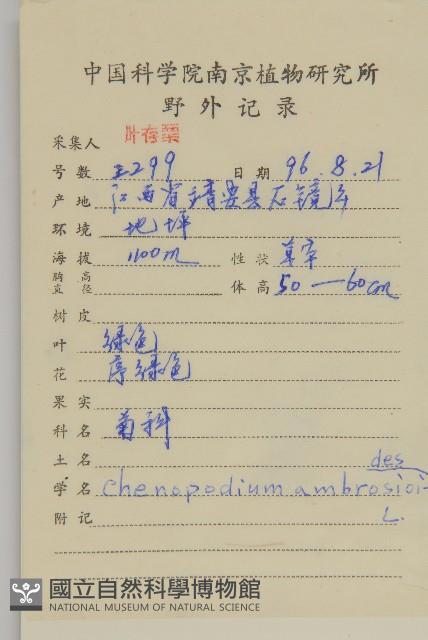 中国科学院南京植物研究所
野外记录
采集人 叶存粟
号数 王299 日期 96.8.21
产地 江西省靖安县石镜
环境 地坪
海拔 1100m 性状 草本
胸高直径 体高 50—60cm
树皮
叶 绿色
花 序绿色
果实
科名 菊科
土名
学名 Chenopodium ambrosioides
附记 L.
國立自然科學博物館
NATIONAL MUSEUM OF NATURAL SCIENCE